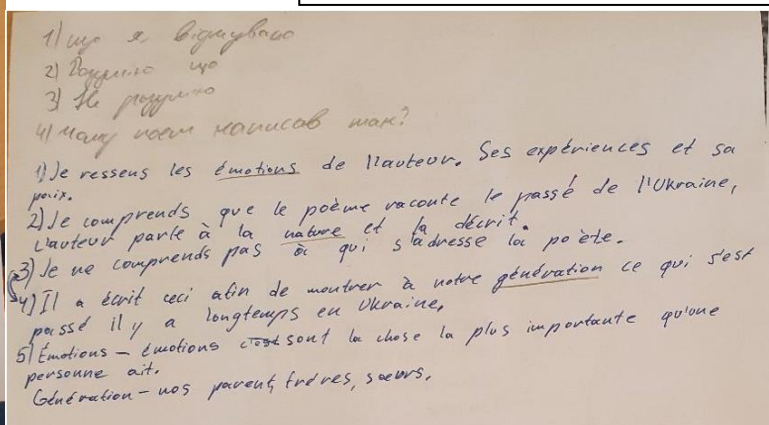 1) що я відчуваю
2) Розумію що
3) Не розумію
4) Чому поет написав так?
1) Je ressens les émotions de l'auteur. Ses expériences et sa
paix.
2) Je comprends que le poème raconte le passé de l'Ukraine,
L'auteur parle à la nature et la décrit.
3) Je ne comprends pas à qui s'adresse la poète.
4) Il a écrit ceci afin de montrer à notre génération ce qui s'est
passé il y a longtemps en Ukraine,
5) Émotions – émotions c'est sont la chose la plus importante qu'une
personne ait.
Génération – nos parent, frères, sœurs.